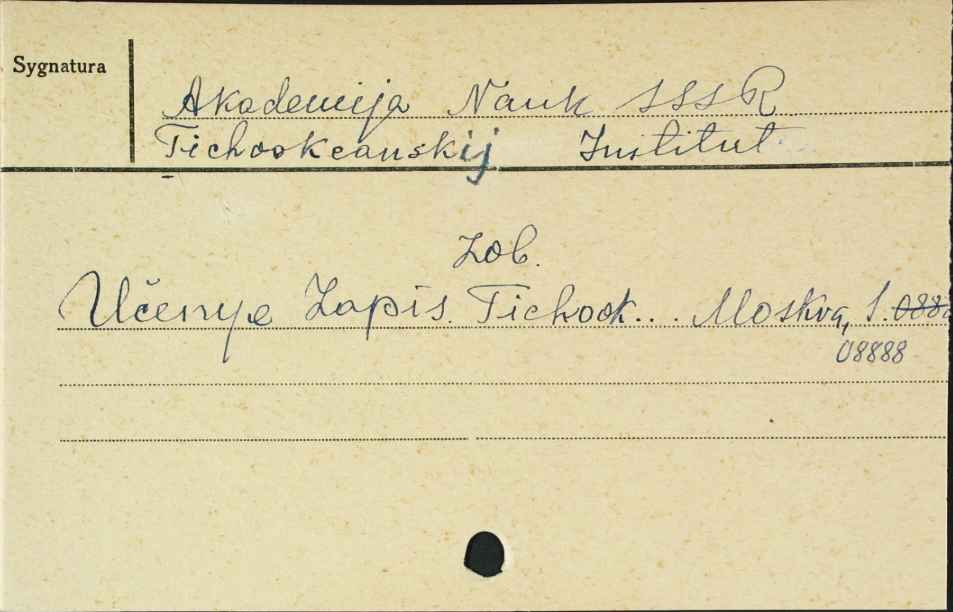 Sygnatura
Akademija Nauk SSSR
Tichookeanskij Institut
Zob.
Učenye Zapis. Tichook... Moskva, S. 0888
08888